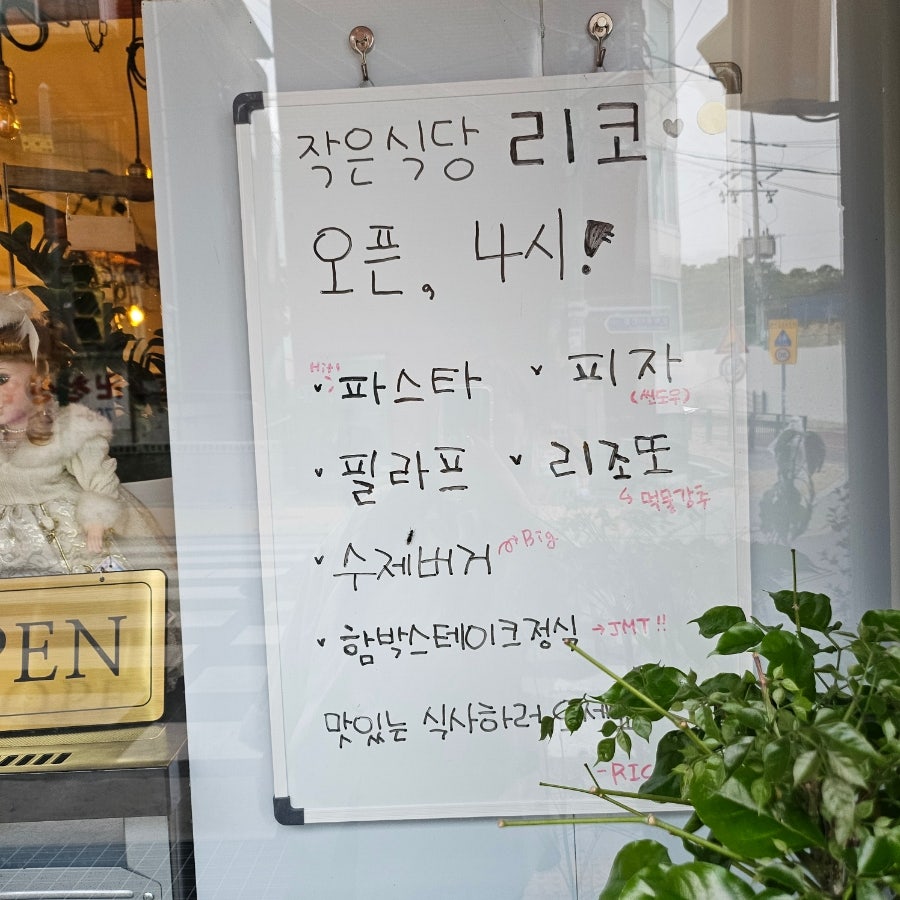 작은식당 리코
오픈, 4시!
Hit!
파스타
피자
(씬도우)
필라프
리조또
먹물강추
수제버거
Big
함박스테이크정식 →JMT!!
맛있는 식사하러
-RIC
PEN